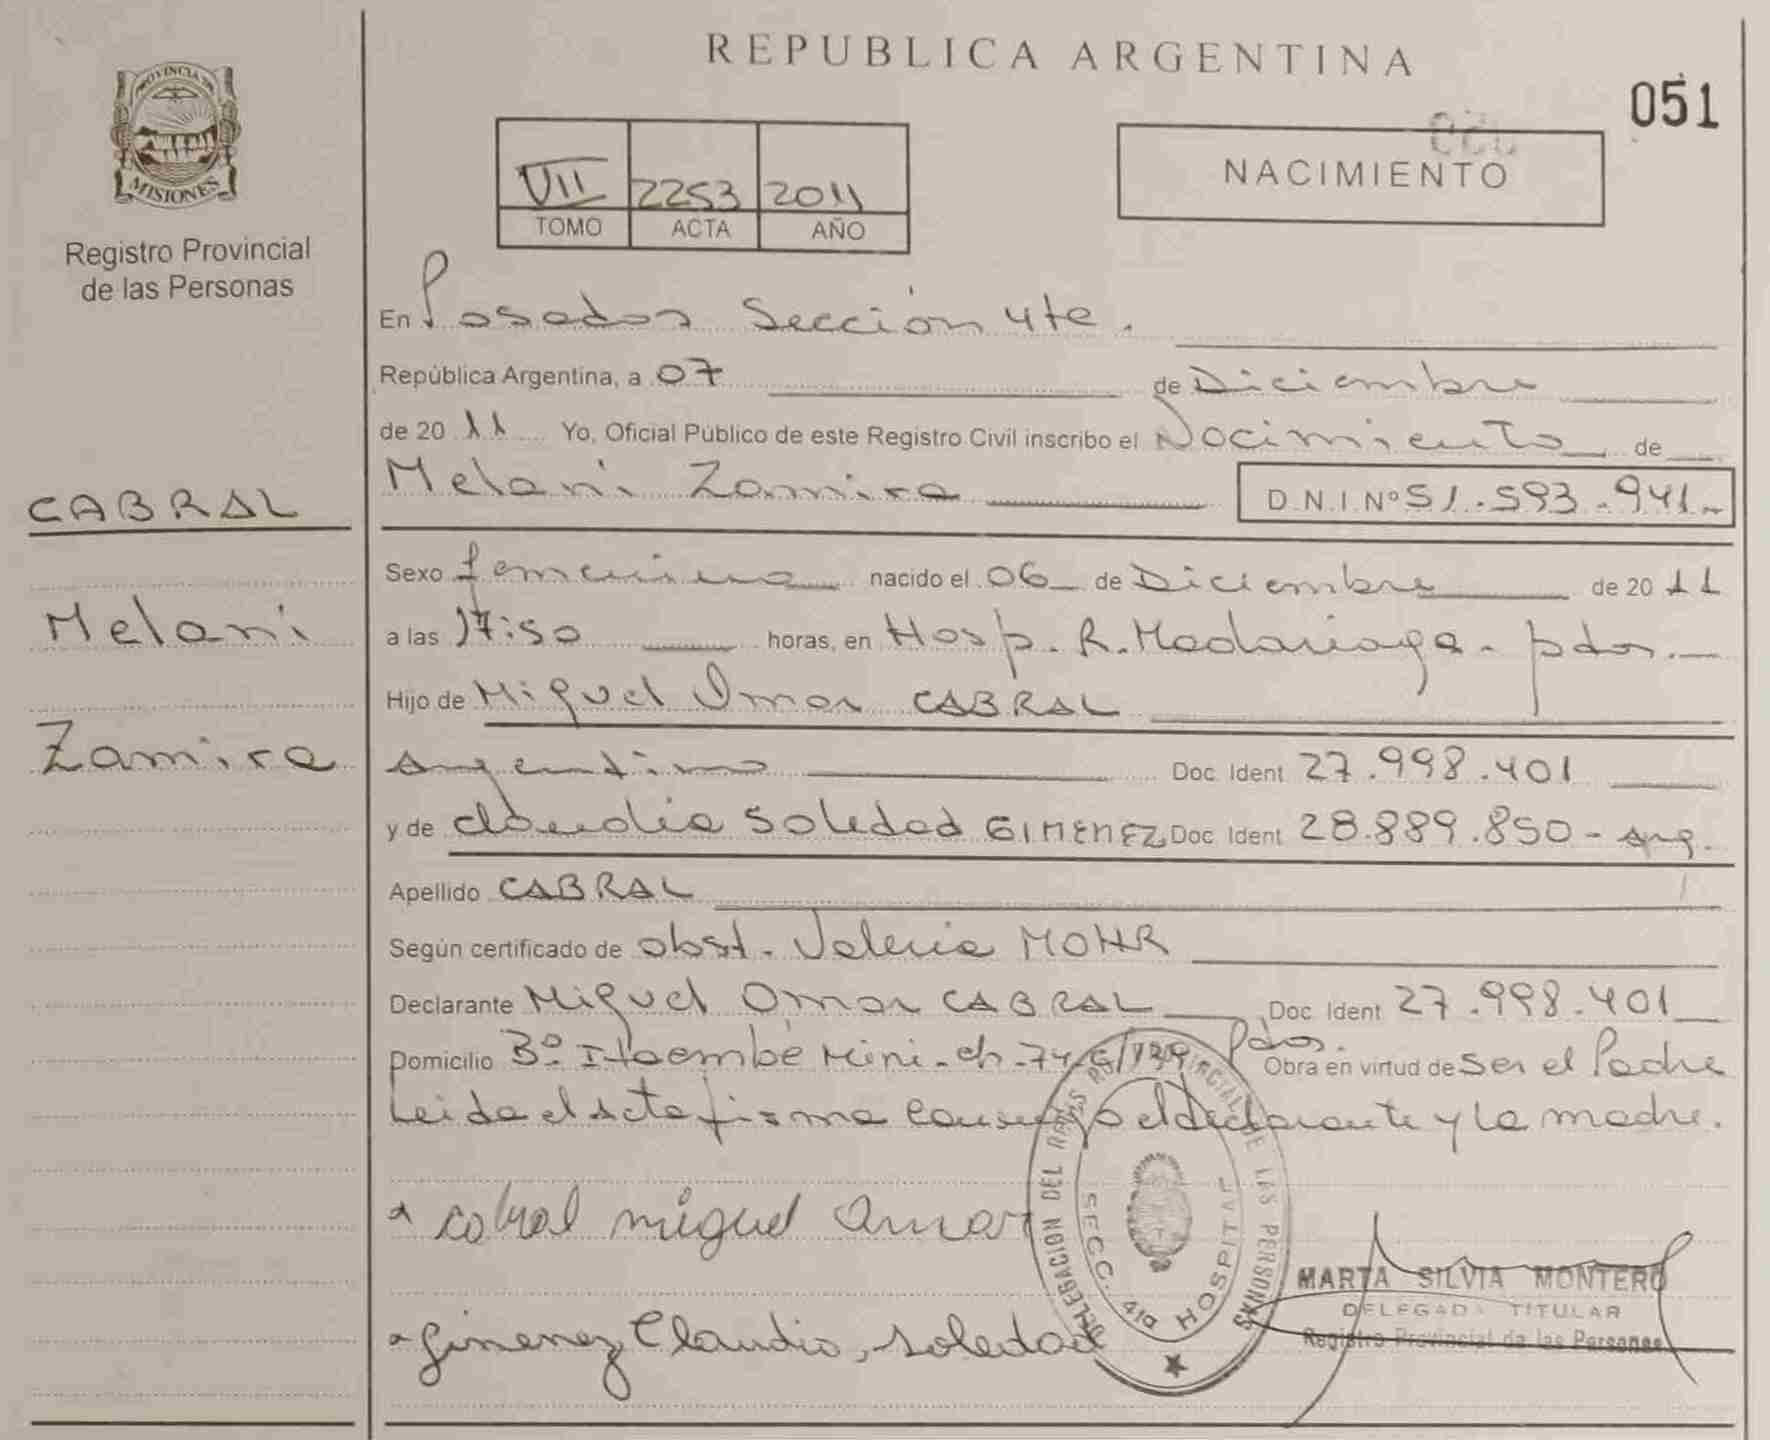 REPUBLICA ARGENTINA
051
PROVINCIA DE
MISIONES
Registro Provincial
de las Personas
VII 2253 2011
TOMO ACTA AÑO
NACIMIENTO
En Posadas Sección 4ta.
República Argentina, a 07 de Diciembre
de 20 11 Yo, Oficial Público de este Registro Civil inscribo el Nacimiento de
Melani Zamira D.N.I.Nº 51.593.941
CABRAL
Melani
Zamira
Sexo femenino nacido el 06 de Diciembre de 20 11
a las 17:50 horas, en Hosp. R. Madariaga - pdas.
Hijo de Miguel Omar CABRAL
Argentino Doc. Ident 27.998.401
y de Claudia Soledad GIMENEZ Doc Ident 28.889.850 - arg.
Apellido CABRAL
Según certificado de obst. Valeria MOHR
Declarante Miguel Omar CABRAL Doc Ident 27.998.401
Domicilio 3º Itaembé Mini - ch - Pdas. Obra en virtud de ser el Padre
Leida el Acta firma conmigo el declarante y la madre.
cabral miguel Omar
Gimenez Claudia, Soledad
DELEGACION DEL PROVINCIAL DE LAS PERSONAS
SECC. 4ta HOSPITAL
MARTA SILVIA MONTERO
DELEGADA TITULAR
Registro Provincial de las Personas